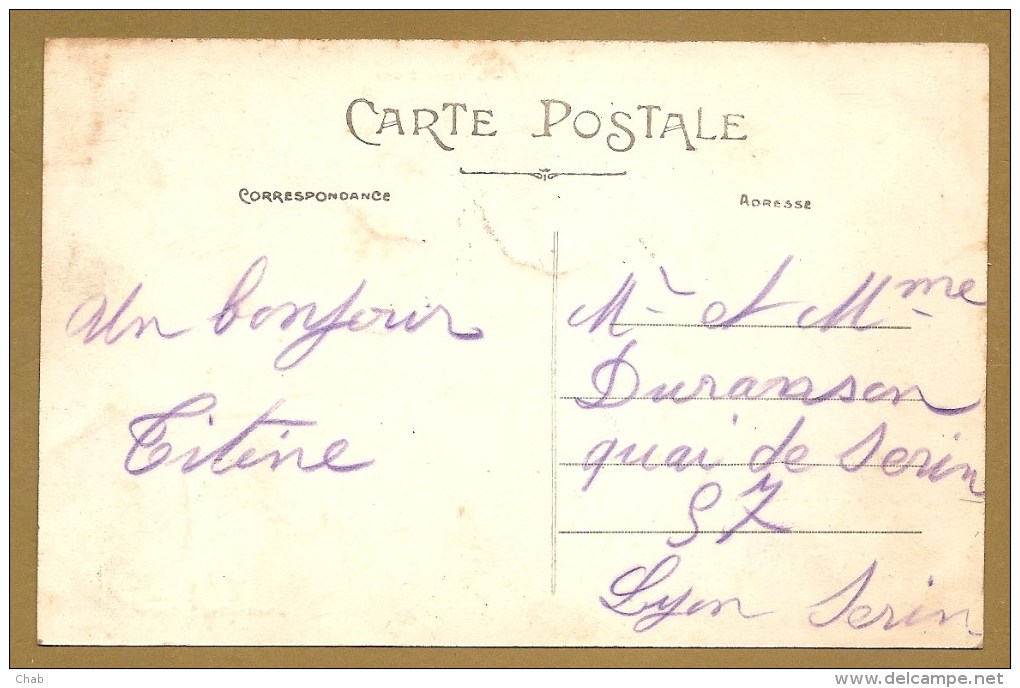 CARTE POSTALE
CORRESPONDANCE
ADRESSE
Un bonjour
Titine
Mr et Mme
Duranson
quai de Serin
57
Lyon Serin
Chab
delcampe.net